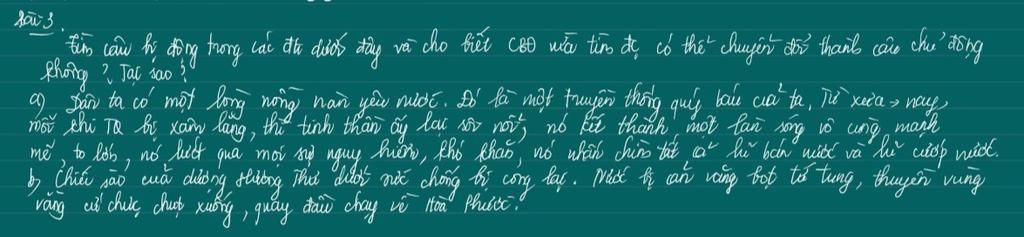 Bài 3.
Tìm câu bị động trong các đtr dưới đây và cho biết CBĐ vừa tìm đc có thể chuyển đổi thành câu chủ động
không? Tại sao?
a) Dân ta có một lòng nồng nàn yêu nước. Đó là một truyền thống quý báu của ta. Từ xưa → nay,
mỗi khi TQ bị xâm lăng, thì tinh thần ấy lại sôi nổi, nó kết thành một làn sóng vô cùng mạnh
mẽ, to lớn, nó lướt qua mọi sự nguy hiểm, khó khăn, nó nhấn chìm tất cả lũ bán nước và lũ cướp nước.
b) Chiếc sào của dượng Hương Thư dưới sức chống bị cong lại. Nước bị cản văng bọt tứ tung, thuyền vùng
vằng cứ chực chụt xuống, quay đầu chạy về Hoà Phước.